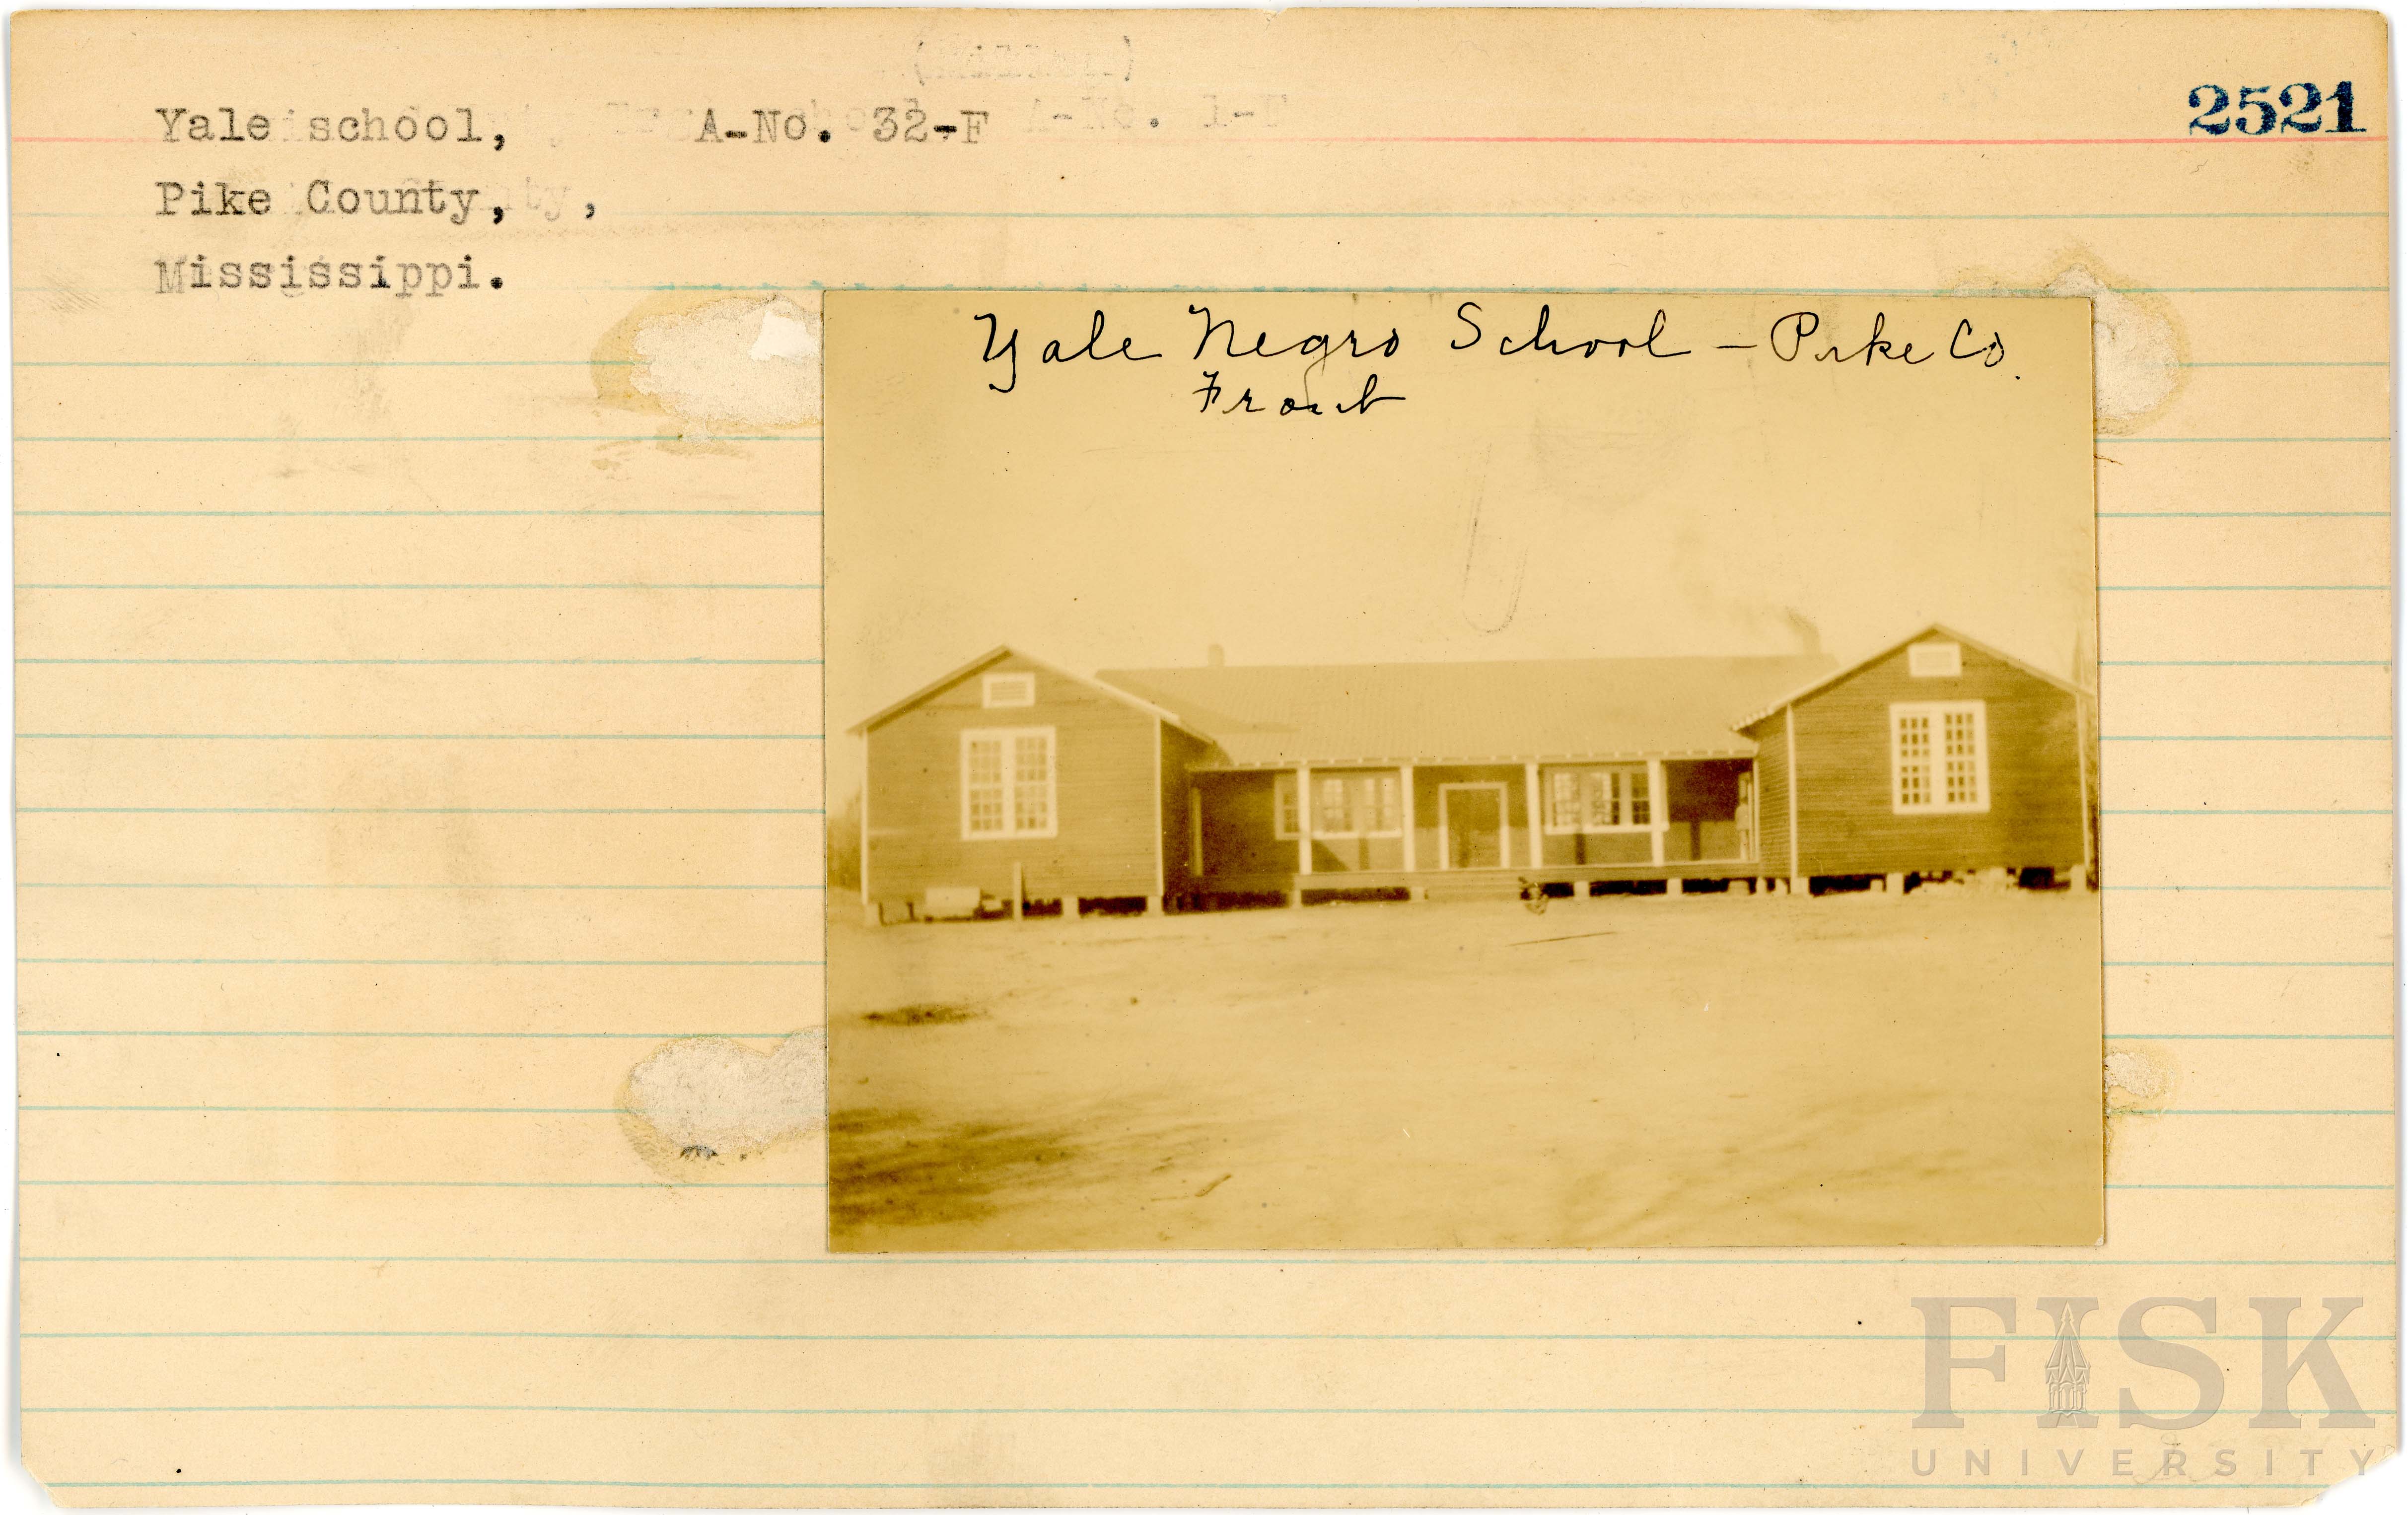 Yale school, A-No. 32-F
2521
Pike County,
Mississippi.
Yale Negro School – Pike Co.
Front
FISK
UNIVERSITY